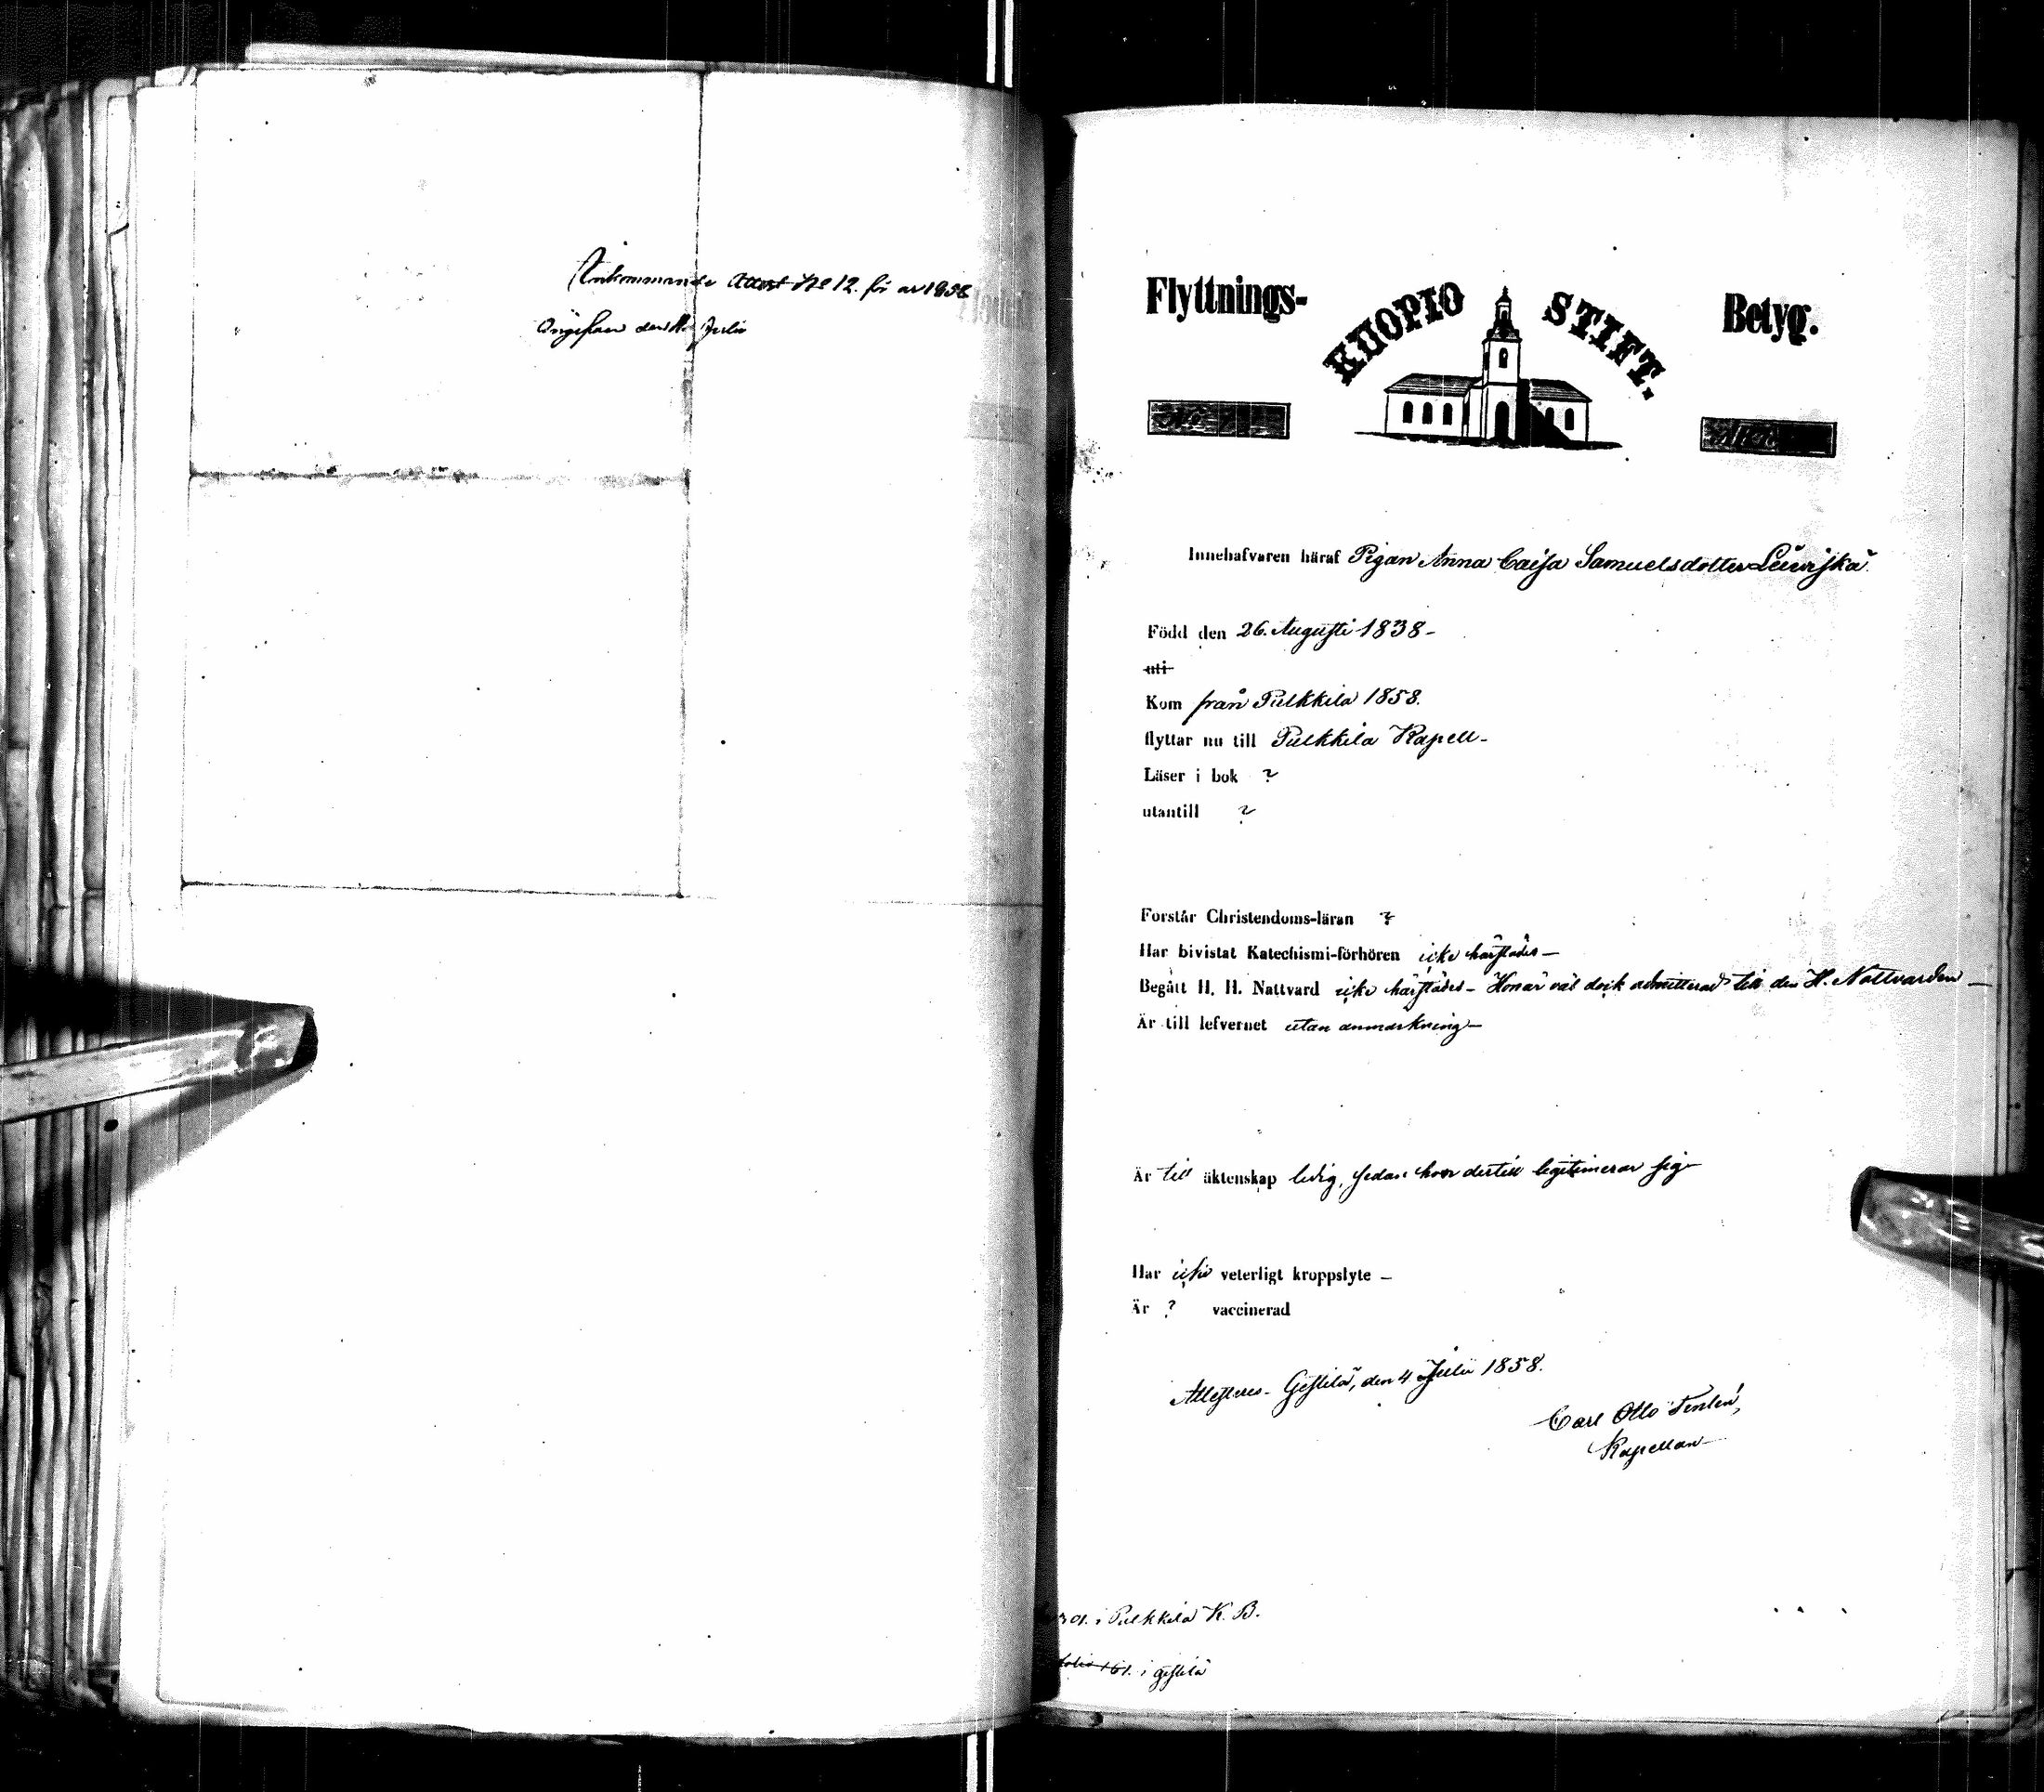 Ankommande Attest No 12. för år 1858
den Julii
Flyttnings- KUOPIO STIFT. Betyg.
Innehafvaren häraf Pigan Anna Caisa Samuelsdotter Leiviskä.
Född den 26. Augusti 1838-
uti
Kom från Pulkkila 1858.
flyttar nu till Pulkkila Kapell-
Läser i bok ?
utantill ?
Förstår Christendoms-läran ?
Har bivistat Katechismi-förhören icke härstädes-
Begått H. H. Nattvard icke härstädes- Hon är väl dock admitterad till den H. Nattvarden-
Är till lefvernet utan anmärkning-
Är till äktenskap ledig, sedan hon dertill legitimerar sig-
Har icke veterligt kroppslyte -
Är ? vaccinerad
Attesteres- Gestilä, den 4 Julii 1858.
Carl Otto
Kapellan
i Pulkkila K. B.
folio 161. i Gestilä